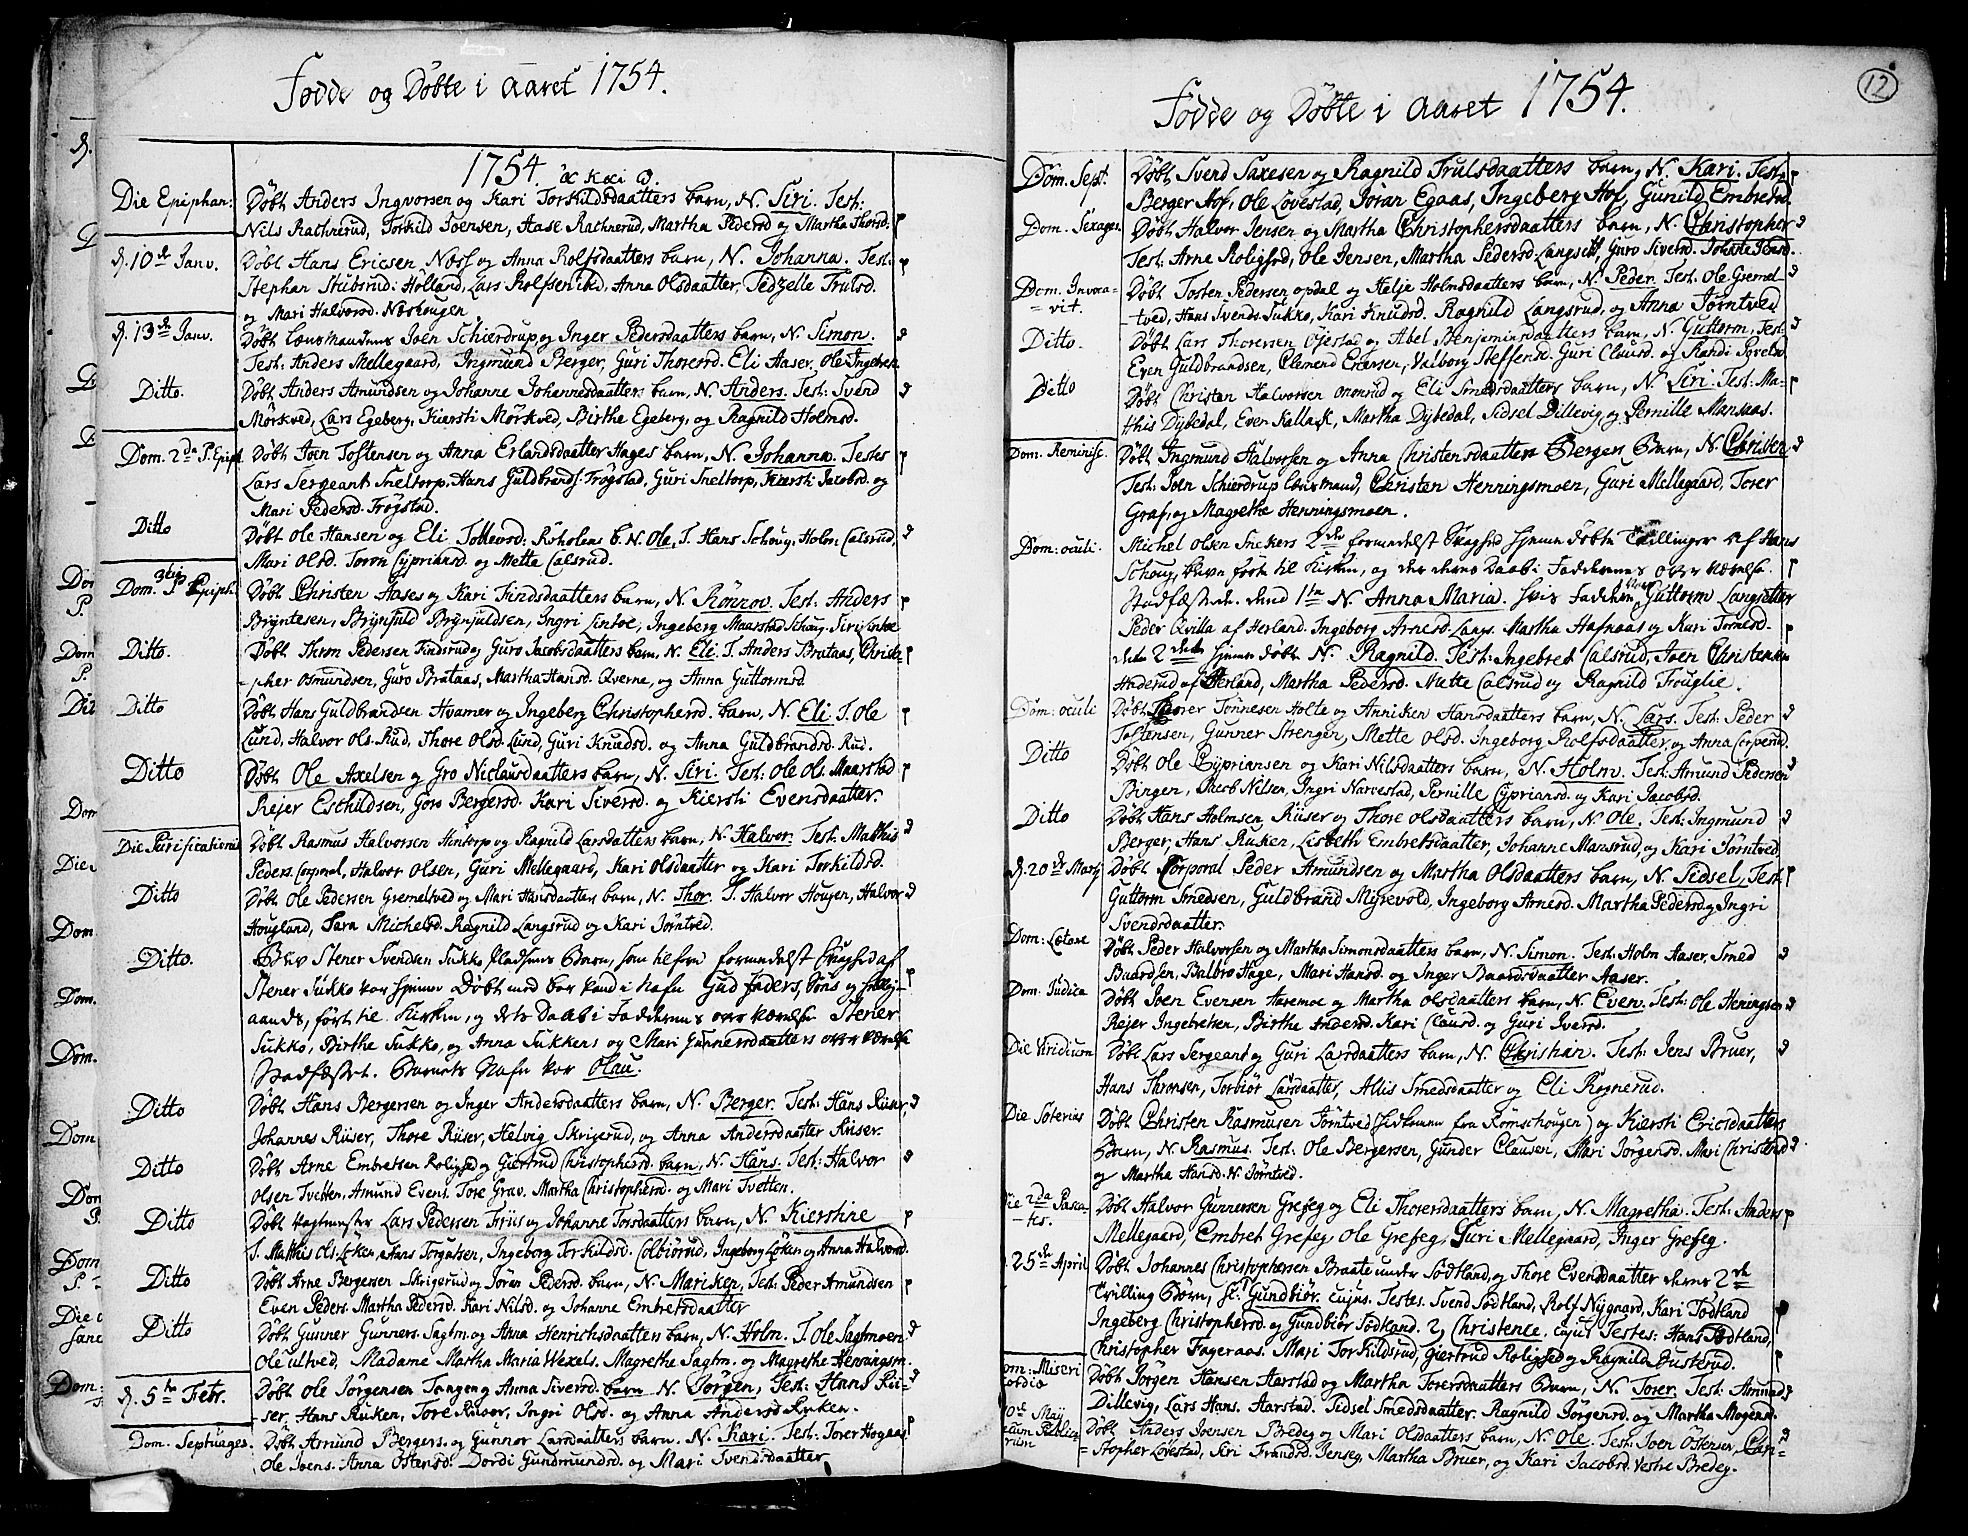 Fødde og Døbte i Aaret 1754.
1754
Die Epiphan: Døbt Anders Ingvorsen og Kari Torkildsdaatters barn, N. Siri. Test:
Nils Rachnerud, Torkild Joensen, Aase Rachnerud, Martha Pedersd og Martha Thorsd. p
d. 10de Janv. Døbt Hans Ericsen Næss og Anna Rolfsdaatters barn, N. Johanna. Test: p
Stephan Stubsrud: Holland, Lars Rolfsen ibid, Anna Olsdaatter, Sidzelle Trulsd.
og Mari Halvorsd. Næshougen
d. 13de Janv. Døbt Lensmandens Joen Schierdrup og Inger Pedersdaatters barn, N. Simon. d
Test: Anders Mellegaard, Ingmund Berger, Guri Thoresd. Eli Aaser. Ole Ingebr.
Ditto. Døbt Anders Amundsen og Johanne Johannesdaatters barn, N. Anders. Test: Svend d
Mörkved, Lars Egeberg, Kiersti Mörkved, Birthe Egeberg, og Ragnild Holmsd.
Dom. 2da P. Epiph. Døbt Joen Tostensen og Anna Erlandsdaatter Hages barn, N. Johanna. Testes p
Lars Sergeant Sneltorp, Hans Guldbrands. Frøgstad, Guri Sneltorp, Kiersti Jacobsd. og
Mari Pedersd. Frøgstad.
Ditto Døbt Ole Hansen og Eli Tollevsd: Röholens b. N. Ole, T. Hans Schoug, Holm Calsrud, d
Mari Olsd. Joron Cypriansd. og Mette Calsrud.
Dom. 3tia P Epiph. Døbt Christen Aases og Kari Findsdaatters barn, N. Rönnov. Test: Anders p
Bryntesen, Brynjuld Brynjuldsen, Ingri Lintoe, Ingeberg Maarstad Schoug. Siri Lintoe
Ditto. Døbt Thron Pedersen Findsrud og Guro Jacobsdaatters barn, N. Eli. T. Anders Brataas, Christo- p
-pher Osmundsen, Guro Brataas, Martha Hansd. Qverne, og Anna Guttormsd.
Ditto Døbt Hans Guldbrandsen Hvamer og Ingeberg Christophersd. barn, N. Eli. T. Ole p
Lund, Halvor Ols. Rud, Thore Olsd. Lund, Guri Knudsd. og Anna Guldbrandsd. Rud.
Ditto Døbt Ole Axelsen og Gro Niclausdaatters barn, N. Siri. Test: Ole Ols. Maarstad p
Rejer Eschildsen, Goro Bergersd. Kari Siversd. og Kiersti Evensdaatter.
Die Purificationis Døbt Rasmus Halvorsen Hintorp og Ragnild Larsdaatters barn, N. Halvor. Test: Mathis d
Peders. Corporal, Halvor Olsen, Guri Mellegaard, Kari Olsdaatter og Kari Torkildsd.
Ditto Døbt Ole Pedersen Gremeltved og Mari Hansdaatters barn, N. Thor. T. Halvor Hougen, Halvor d
Hougland, Sara Michelsd. Ragnild Langsrud og Kari Törntved.
Ditto. Blev Stener Svendsen Sukko Pladsens Barn, som tilforn formedelst Svaghed af
Stener Sukko var hjemme Døbt med bar Vand i Nafn Gud Faders, Søns og Hellig- p
aands, ført til Kirken, og dets Daab i Faddernes overværelse Stener
Sukko, Birthe Sukko, og Anna Sukkens og Mari Gunnersdaatters overværelse
Stadfæstet. Barnets Nafn var Olau.
Ditto Døbt Hans Bergersen og Inger Andersdaatters barn, N. Berger. Test: Hans Riiser, d
Johannes Riiser, Thore Riiser, Helvig Skrigerud, og Anna Andersdaatter Riiser.
Ditto Døbt Arne Embretsen Roligsd og Giertrud Christophersd. barn, N. Hans. Test: Halvor d
Olsen Tvetten, Amund Evens. Tore Grav. Martha Christophersd. og Mari Tvetten.
Ditto Døbt Vagtmester Lars Pedersen Friis og Johanne Torsdaatters barn, N. Kierstine p
T. Mathis Ols. Löken, Hans Torgalsen, Ingeborg Torkildsd. Colbiörud, Ingeborg Löken og Anna Halvorsd.
Ditto Døbt Arne Bergersen Skrigerud og Jöran Pedersd. barn, N. Mariken. Test: Peder Amundsen p
Even Peders. Martha Pedersd. Kari Nilsd. og Johanne Embretsdaatter
Ditto Døbt Gunner Gunners. Sagtm. og Anna Henrichsdaatters barn, N. Holm. T. Ole Sagtmoen d
Ole Ultved, Madame Martha Maria Wexels. Magrethe Sagtm. og Magrethe Henningsm.
d. 5te Febr. Døbt Ole Jörgensen Tangen og Anna Siversd. barn N. Jørgen, Test: Hans Rii- d
ser, Hans Ruken, Tore Riiser, Ingri Olsd. og Anna Andersd Ruken.
Dom. Septuages. Døbt Amund Bergers. og Gunnor Larsdaatters barn. N. Kari. Test: Torer Hogaas p
Ole Joens. Anna Ostensd. Dordi Gundmundsd. og Mari Svendsdaatter
Fødde og Døbte i Aaret 1754.
12
Dom. Sept. Døbt Svend Saxesen og Ragnild Trulsdaatters barn, N. Kari. Test: p
Berger Hof, Ole Lovestad, Jöran Egaas, Ingeberg Hof, Gunild Embretsd.
Dom. Sexages. Døbt Halvor Jensen og Martha Christophersdaatters barn, N. Christopher d
Test: Arne Roligsd, Ole Jensen, Martha Pedersd. Langsett, Guro Siversd.
Dom. Invoca- Døbt Tosten Pedersen Opdal og Helje Holmsdaatters barn, N. Peder. Test: Ole Gremel d
=vit. -tved, Hans Svends. Sukko, Kari Knudsd. Ragnild Langsrud, og Anna Törntved
Ditto. Døbt Lars Thoresen Ojestad og Abel Benjeminsdaatters barn, N. Guttorm, Test: d
Even Guldbrandsen, Clemend Enersen, Valborg Steffensd. Guri Clausd. og Randi
Ditto Døbt Christen Halvorsen Ononrud og Eli Smedsdaatters barn, N. Siri. Test: Ma- p
this Dybedal, Even Kallack, Martha Dybedal, Sidsel Dillevig og Pernille Mansaas.
Dom. Reminisc. Døbt Ingmund Halvorsen og Anna Christensdaatters Bergers Barn, N. Christen d
Test: Joen Schierdrup Lensmand, Christen Henningsmoen, Guri Mellegaard, Torer
Graf, og Magrethe Henningsmoen.
Dom: Oculi. Michel Olsen Snekers 2de formedelst Svaghed hjemme døbte Tvillinger af Hans
Schoug, blevn førte til Kirken, og der deres Daab i Faddernes overværelse p
Stadfæstede. dend 1te N. Anna Maria. hvis Faddere vare Guttorm Langsetter
Peder Qvilla af Herland. Ingeborg Arnesd. Langs. Martha Hafnaas og Kari Tornesd. p
den 2den hjemme døbte N. Ragnild. Test: Ingebret Calsrud, Joen Christensen
Haderud af Herland, Martha Pedersd. Mette Calsrud og Ragnild Frouglie.
Dom: Oculi Døbt Thorer Tönnesen Holte og Anniken Hansdaatters barn, N. Lars. Test: Peder d
Tostensen, Gunner Strengen, Mette Olsd. Ingeborg Rolfsdaatter, og Anna Corperud.
Ditto Døbt Ole Cypriansen og Kari Nilsdaatters barn, N. Holm. Test: Amund Pedersen d
Bingen, Jacob Nilsen, Ingri Narvestad, Pernille Cypriansd. og Kari Jacobsd.
Ditto Døbt Hans Holmsen Riiser og Thore Olsdaatters barn, N. Ole. Test: Ingmund d
Berger, Hans Ruken, Lisbeth Embretsdaatter, Johanne Mansrud, og Kari Törntved
d. 20de Martj Døbt Corporal Peder Amundsen og Martha Olsdaatters barn, N. Sidsel, Test: p
Guttorm Smedsen, Guldbrand Myrevold, Ingeborg Arnesd. Martha Pedersd og Ingri
Svendsdaatter.
Dom: Lætare Døbt Peder Halvorsen og Martha Simonsdaatters barn, N. Simon. Test: Holm Aaser, Smed d
Baardsen, Balbro Hage, Mari Hansd. og Inger Baardsdaatter Aaser.
Dom. Judica Døbt Joen Evensen Aaremoe og Martha Olsdaatters barn, N. Even. Test: Ole Heningsen d
Rejer Ingebretsen, Birthe Andersd. Kari Clausd. og Guri Iversd.
Die Viridium Døbt Lars Sergeant og Guri Larsdaatters barn, N. Christian. Test: Jens Bruer, d
Hans Thronsen, Torbiör Larsdaatter, Allis Smedsdaatter og Eli Rognerud.
Die Soterius Døbt Christen Rasmusen Törntved (hidkomne fra Römschougen) og Kiersti Ericsdaatters
Barn, N. Rasmus. Test. Ole Bergersen, Gunder Clausen, Mari Jörgensd. Mari Christensd d
og Martha Hansd. N. Törntved.
Die 2da Pasca- Døbt Halvor Gunnersen Grefseg og Eli Thoresdaatters barn, N. Magretha. Test: Anders p
-tis. Mellegaard, Embret Grefseg, Ole Grefseg, Guri Mellegaard, Inger Grefseg.
25de April Døbt Johannes Christophersen Braate under Södtland, og Thore Evensdaatter deres 2de
Tvilling Børn, sc: Gundbiör. cujus. Testes. Svend Södtland, Rolf Nÿgaard, Kari Södtland p
Ingeberg Christophersd. og Gundbiör Södtland. 2) Christence. cujus Testes: Hans Södtland,
Christopher Fageraas. Mari Torkildsrud, Giertrud Roligsed og Ragnild Justerud. p
Dom: Miseri Døbt Jörgen Hansen Harstad og Martha Torersdaatters Barn, N. Torer. Test: Amund d
cordiæ Dillevig, Lars Hans. Harstad. Sidsel Smedsdaatter. Ragnild Jörgensd. og Martha Mogensd.
May Døbt Anders Joensen Bredeg og Mari Olsdaatters barn, N. Ole. Test: Joen Östensen, Chri- d
=stopher Lovestad, Siri Frandsd. Jenseg, Martha Bruer, og Kari Jacobsd. Vestre Bredeg.